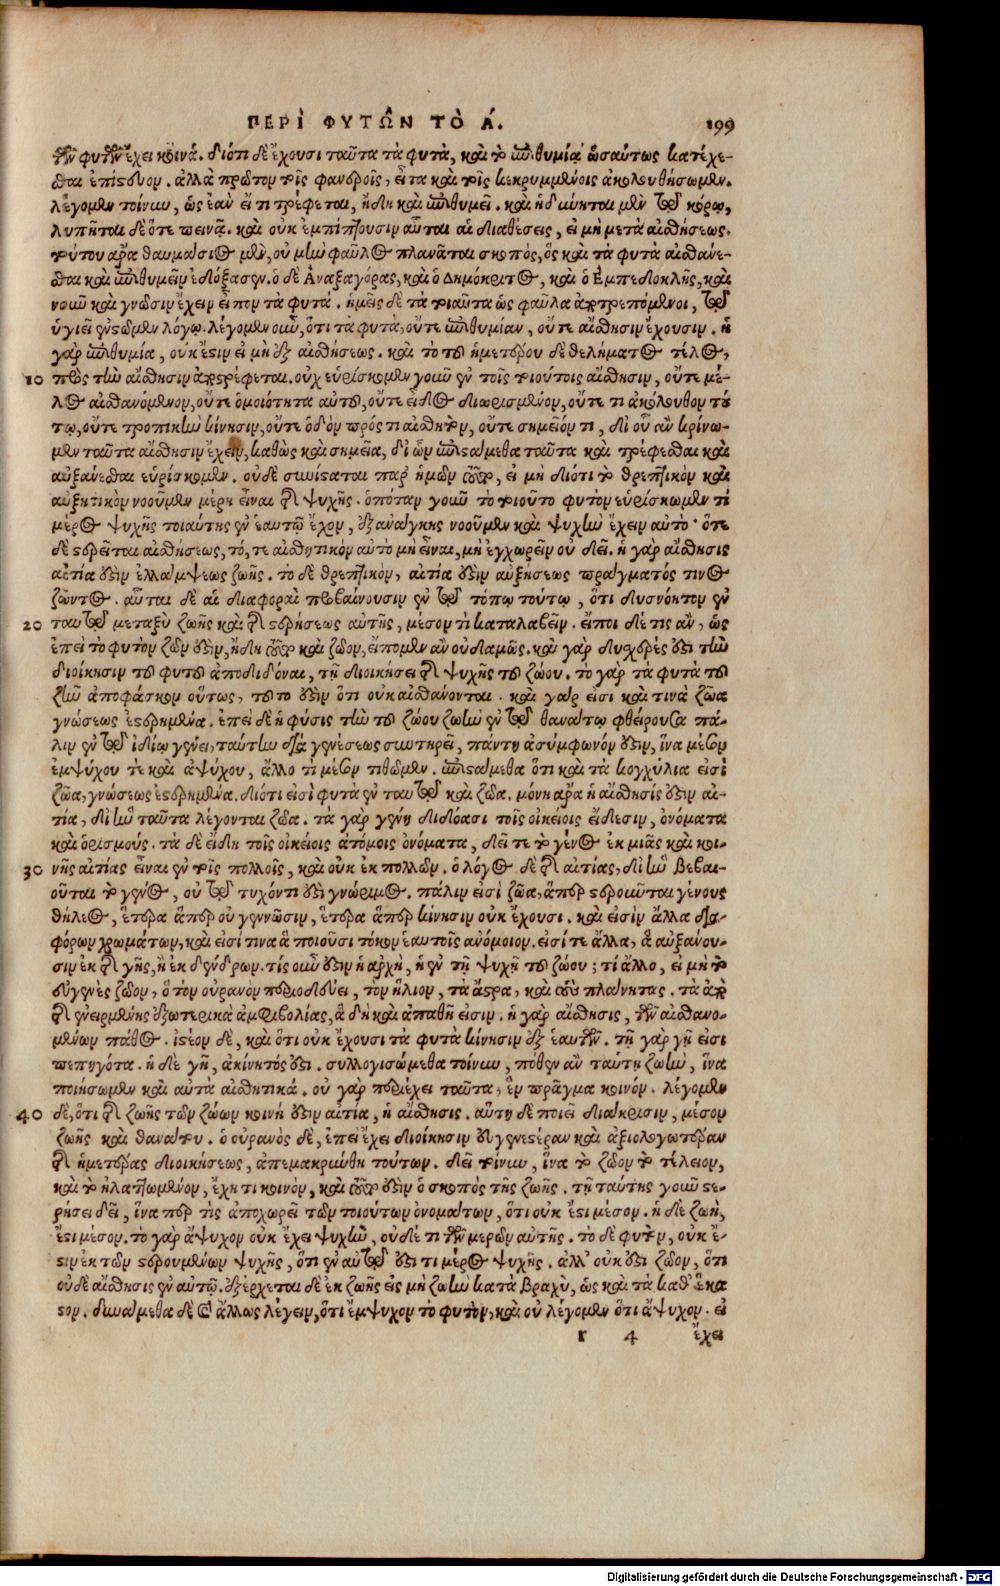 ΠΕΡῚ ΦΥΤΩ͂Ν ΤῸ Α΄. 199
τῶν φυτῶν ἔχει κοινά. διότι δὲ ἔχουσι ταῦτα τὰ φυτὰ, καὶ τὸ ἐπιθυμία ὡσαύτως κατέχε-
σθαι ἐπίστευον. ἀλλὰ πρῶτον τοῖς φανεροῖς, εἶτα καὶ τοῖς κεκρυμμένοις ἀκολουθήσωμεν.
λέγομεν τοίνυν, ὡς ἐὰν εἴ τι τρέφεται, ἤδη καὶ ἐπιθυμεῖ. καὶ ἥδύνηται μὲν τῷ κόρῳ,
λυπῆται δὲ ὅτε πεινᾷ. καὶ οὐκ ἐμπίπτουσιν αὗται αἱ διαθέσεις, εἰ μὴ μετὰ αἰσθήσεως.
τούτου ἄρα θαυμάσιος μὲν, οὐ μὴν φαῦλος πλανᾶται σκοπὸς, ὃς καὶ τὰ φυτὰ αἰσθάνε-
σθαι καὶ ἐπιθυμεῖν ἐδόξασεν. ὁ δὲ Ἀναξαγόρας, καὶ ὁ Δημόκριτος, καὶ ὁ Ἐμπεδοκλῆς, καὶ
νοῦν καὶ γνῶσιν ἔχειν εἶπον τὰ φυτά. ἡμεῖς δὲ τὰ τοιαῦτα ὡς φαῦλα ἀποτρεπόμενοι, τῷ
ὑγιεῖ ἐνστῶμεν λόγῳ. λέγομεν οὖν, ὅτι τὰ φυτὰ, οὔτε ἐπιθυμίαν, οὔτε αἴσθησιν ἔχουσιν. ἡ
γὰρ ἐπιθυμία, οὐκ ἔστιν εἰ μὴ ἐξ αἰσθήσεως. καὶ τὸ τοῦ ἡμετέρου δὲ θελήματος τέλος,
10 πρὸς τὴν αἴσθησιν ἀποστρέφεται. οὐχ εὑρίσκομεν γοῦν ἐν τοῖς τοιούτοις αἴσθησιν, οὔτε μέ-
λος αἰσθανόμενον, οὔτε ὁμοιότητα αὐτοῦ, οὔτε εἶδος διωρισμένον, οὔτε τι ἀκόλουθον τού
τῳ, οὔτε τροπικὴν κίνησιν, οὔτε ὁδὸν πρός τι αἰσθητὸν, οὔτε σημεῖόν τι, δι' οὗ ἂν κρίνω-
μεν ταῦτα αἴσθησιν ἔχειν, καθὼς καὶ σημεῖα, δι' ὧν ἐπιστάμεθα ταῦτα καὶ τρέφεσθαι καὶ
αὐξάνεσθαι εὑρίσκομεν. οὐδὲ συνίσταται παρ' ἡμῶν τοῦτο, εἰ μὴ διότι τὸ θρεπτικὸν καὶ
αὐξητικὸν νοοῦμεν μέρη εἶναι τῆς ψυχῆς. ὁπόταν γοῦν τὸ τοιοῦτο φυτὸν εὑρίσκωμεν τὶ
μέρος ψυχῆς τοιαύτης ἐν ἑαυτῷ ἔχον, ἐξ ἀνάγκης νοοῦμεν καὶ ψυχὴν ἔχειν αὐτό· ὅτε
δὲ στερεῖται αἰσθήσεως, τό, τε αἰσθητικὸν αὐτὸ μὴ εἶναι, μὴ ἐγχωρεῖν οὐ δεῖ. ἡ γὰρ αἴσθησις
αἰτία ἐστὶν ἐλλάμψεως ζωῆς. τὸ δὲ θρεπτικὸν, αἰτία ἐστὶν αὐξήσεως πράγματός τινος
ζῶντος. αὗται δὲ αἱ διαφοραὶ προβαίνουσιν ἐν τῷ τόπῳ τούτῳ, ὅτι δυσνόητον ἐν
20 ταυτῷ μεταξὺ ζωῆς καὶ τῆς στερήσεως αὐτῆς, μέσον τὶ καταλαβεῖν. εἴποι δέ τις ἂν, ὡς
ἐπεὶ τὸ φυτὸν ζῶν ἐστὶν, ἤδη τοῦτο καὶ ζῶον, εἴπομεν ἂν οὐδαμῶς. καὶ γὰρ δυσχερές ἐστι τὴν
διοίκησιν τοῦ φυτοῦ ἀποδιδόναι, τῇ διοικήσει τῆς ψυχῆς τοῦ ζώου. τὸ γὰρ τὰ φυτὰ τοῦ
ζῆν ἀποφάσκον οὕτως, τοῦτο ἐστὶν ὅτι οὐκ αἰσθάνονται. καὶ γάρ εἰσι καὶ τινὰ ζῶα
γνώσεως ἐστερημένα. ἐπεὶ δὲ ἡ φύσις τὴν τοῦ ζώου ζωὴν ἐν τῷ θανάτῳ φθείρουσα πά-
λιν ἐν τῷ ἰδίῳ γένει, ταύτην διὰ γενέσεως συντηρεῖ, πάντη ἀσύμφωνόν ἐστιν, ἵνα μέσον
ἐμψύχου τὲ καὶ ἀψύχου, ἄλλο τὶ μέσον τιθῶμεν. ἐπιστάμεθα ὅτι καὶ τὰ κογχύλια εἰσὶ
ζῶα, γνώσεως ἐστερημένα. διότι εἰσὶ φυτὰ ἐν ταυτῷ καὶ ζῶα. μόνη ἄρα ἡ αἴσθησίς ἐστιν αἰ-
τία, δι' ἣν ταῦτα λέγονται ζῶα. τὰ γὰρ γένη διδόασι τοῖς οἰκείοις εἴδεσιν, ὀνόματα
καὶ ὁρισμούς. τὰ δὲ εἴδη τοῖς οἰκείοις ἀτόμοις ὀνόματα, δεῖ τε τὸ γένος ἐκ μιᾶς καὶ κοι-
30 νῆς αἰτίας εἶναι ἐν τοῖς πολλοῖς, καὶ οὐκ ἐκ πολλῶν. ὁ λόγος δὲ τῆς αἰτίας, δι' ἣν βεβαι-
οῦται τὸ γένος, οὐ τῷ τυχόντι ἐστὶ γνώριμος. πάλιν εἰσὶ ζῶα, ἅπερ στεροῦνται γένους
θήλεος, ἕτερα ἅπερ οὐ γεννῶσιν, ἕτερα ἅπερ κίνησιν οὐκ ἔχουσι. καὶ εἰσὶν ἄλλα δια-
φόρων χρωμάτων, καὶ εἰσί τινα ἃ ποιοῦσι τόκον ἑαυτοῖς ἀνόμοιον. εἰσί τε ἄλλα, ἃ αὐξάνου-
σιν ἐκ τῆς γῆς, ἢ ἐκ δένδρων. τίς οὖν ἐστὶν ἡ ἀρχὴ, ἡ ἐν τῇ ψυχῇ τοῦ ζώου; τί ἄλλο, εἰ μὴ τὸ
εὐγενὲς ζῶον, ὃ τὸν οὐρανὸν περιοδεύει, τὸν ἥλιον, τὰ ἄστρα, καὶ τοὺς πλάνητας. τὰ ἀπὸ
τῆς ἐνειρμένης ἐξωτερικὰ ἀμφιβολίας, ἃ δὴ καὶ ἀπαθῆ εἰσιν. ἡ γὰρ αἴσθησις, τῶν αἰσθανο-
μένων πάθος. ἰστέον δὲ, καὶ ὅτι οὐκ ἔχουσι τὰ φυτὰ κίνησιν ἐξ ἑαυτῶν. τῇ γὰρ γῇ εἰσι
πεπηγότα. ἡ δὲ γῆ, ἀκίνητός ἐστι. συλλογισώμεθα τοίνυν, πόθεν ἂν ταύτῃ ζωὴν, ἵνα
ποιήσωμεν καὶ αὐτὰ αἰσθητικά. οὐ γὰρ περιέχει ταῦτα, ἓν πρᾶγμα κοινόν. λέγομεν
40 δὲ, ὅτι τῆς ζωῆς τῶν ζώων κοινή ἐστιν αἰτία, ἡ αἴσθησις. αὕτη δὲ ποιεῖ διάκρισιν, μέσον
ζωῆς καὶ θανάτου. ὁ οὐρανὸς δὲ, ἐπεὶ ἔχει διοίκησιν εὐγενεστέραν καὶ ἀξιολογωτέραν
τῆς ἡμετέρας διοικήσεως, ἀπεμακρύνθη τούτων. δεῖ τοίνυν, ἵνα τὸ ζῶον τὸ τέλειον,
καὶ τὸ ἠλαττωμένον, ἔχῃ τι κοινὸν, καὶ τοῦτο ἐστὶν ὁ σκοπὸς τῆς ζωῆς. τῇ ταύτης γοῦν στε-
ρήσει δεῖ, ἵνα περ τὶς ἀποχωρεῖ τῶν τοιούτων ὀνομάτων, ὅτι οὐκ ἔστι μέσον. ἡ δὲ ζωὴ,
ἔστι μέσον. τὸ γὰρ ἄψυχον οὐκ ἔχει ψυχὴν, οὐδέ τι τῶν μερῶν αὐτῆς. τὸ δὲ φυτὸν, οὐκ ἔ-
στιν ἐκ τῶν στερουμένων ψυχῆς, ὅτι ἐν αὐτῷ ἐστι τὶ μέρος ψυχῆς. ἀλλ' οὐκ ἔστι ζῶον, ὅτι
οὐδὲ αἴσθησις ἐν αὐτῷ. ἐξέρχεται δὲ ἐκ ζωῆς εἰς μὴ ζωὴν κατὰ βραχὺ, ὡς καὶ τὰ καθ' ἕκα
στον. δυνάμεθα δὲ καὶ ἄλλως λέγειν, ὅτι ἔμψυχον τὸ φυτὸν, καὶ οὐ λέγομεν ὅτι ἄψυχον. εἰ
r 4 ἔχει
Digitalisierung gefördert durch die Deutsche Forschungsgemeinschaft - DFG